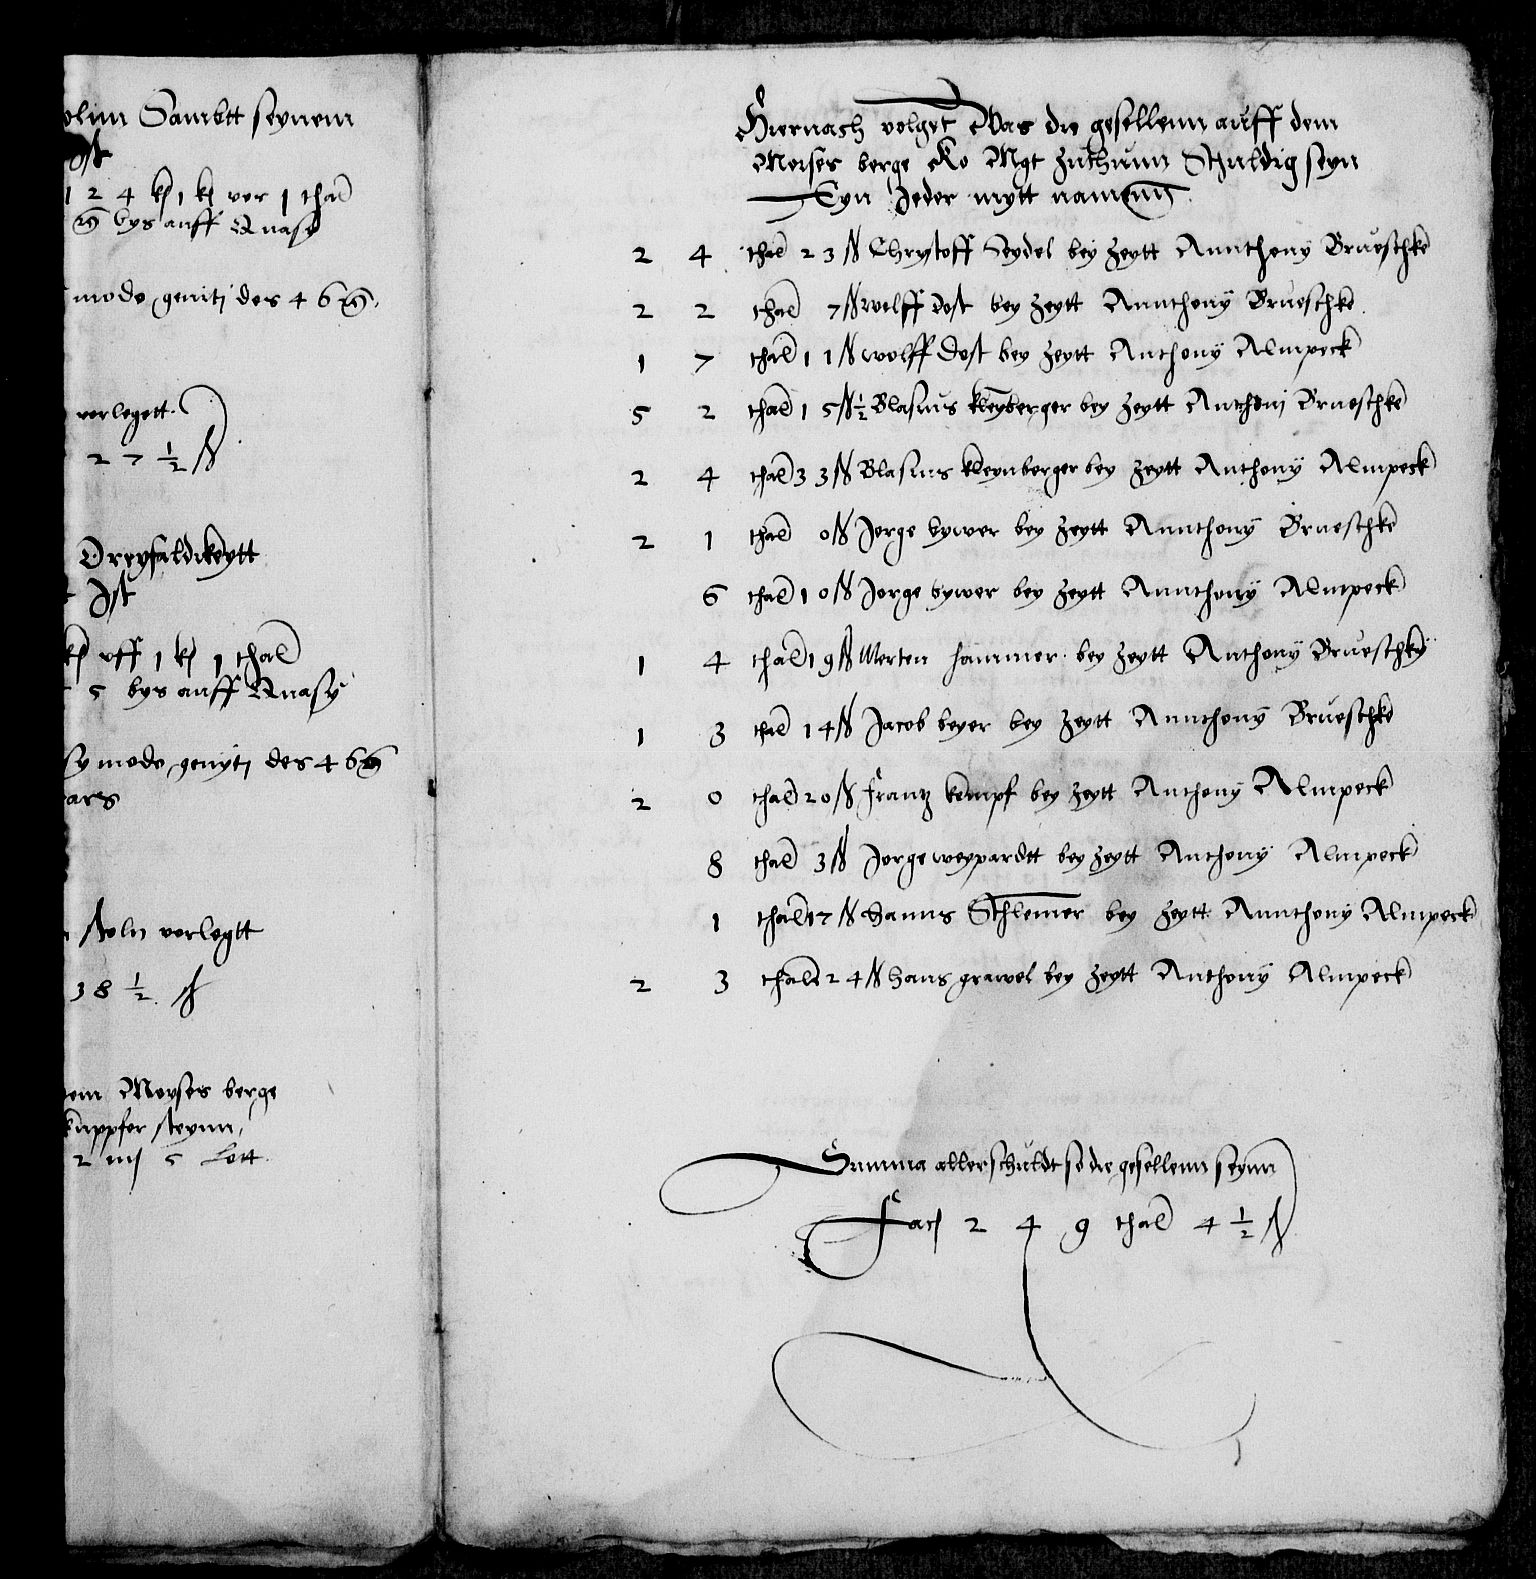 olim Sambtt seynem
ost
1 2 4 k 1 k vor 1 thal
bys auff Quasy
modo geniti des 4 6
verlegett
2 7 ½ ß
Dreyfaldikeytt
Ist
uff 1 k 1 thal
5 bys auff Quasy
sy modo genytj des 4 6
ars
stoln verlegtt
3 8 ½ ß
em Moyses berge
kuppfer steynn
2 iiij 5 Lott
Hiernach volget Was die gesellenn auff dem
Moises berge Ko Mgt zuthunn Schuldig seyn
Eyn Jeder mytt namenn
2 4 thal 2 3 ß Chrystoff Seydel bey Zeytt Annthony Brueschke
2 2 thal 7 ß wolff dost bey Zeytt Annthony Brueschke
1 7 thal 1 1 ß wolff dost bey Zeytt Anthony Almpeck
5 2 thal 1 5 ß ½ Blasius kleyberger bey Zeytt Anthonj Brueschke
2 4 thal 3 3 ß Blasius kleynberger bey Zeytt Anthony Almpeck
2 1 thal 0 ß Jorge bywer bey Zeytt Annthony Brueschke
6 thal 1 0 ß Jorge bywer bey Zeytt Annthony Almpeck
1 4 thal 1 9 ß Merten hammer bey Zeytt Anthony Brueschky
1 3 thal 1 4 ß Jacob beyer bey Zeytt Annthony Brueschke
2 0 thal 2 0 ß frantz kempf bey Zeytt Anthony Almpeck
8 thal 3 ß Jorge weyppardtt bey Zeytt Anthony Almpeck
1 thal 1 7 ß hanns Schlemer bey Zeytt Annthony Almpeck
2 3 thal 2 4 ß hans grawel bey Zeytt Anthony Almpeck
Summa aller schuldt so die gesellenn seynn
facj 2 4 9 thal 4 ½ ß